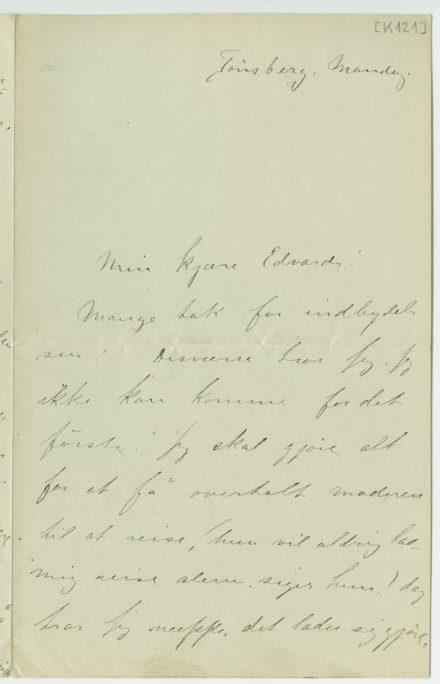 [K121]
Tönsberg. Mandag.
Min kjære Edvard!
Mange tak for indbydel-
sen! Desværre tror jeg, jeg
ikke kan komme for det
förste. Jeg skal gjöre alt
for at få overtalt moderen
til at reise, (hun vil aldrig lade
mig reise alene, siger hun!) dog
tror jeg neppe, det lader sig gjöre,